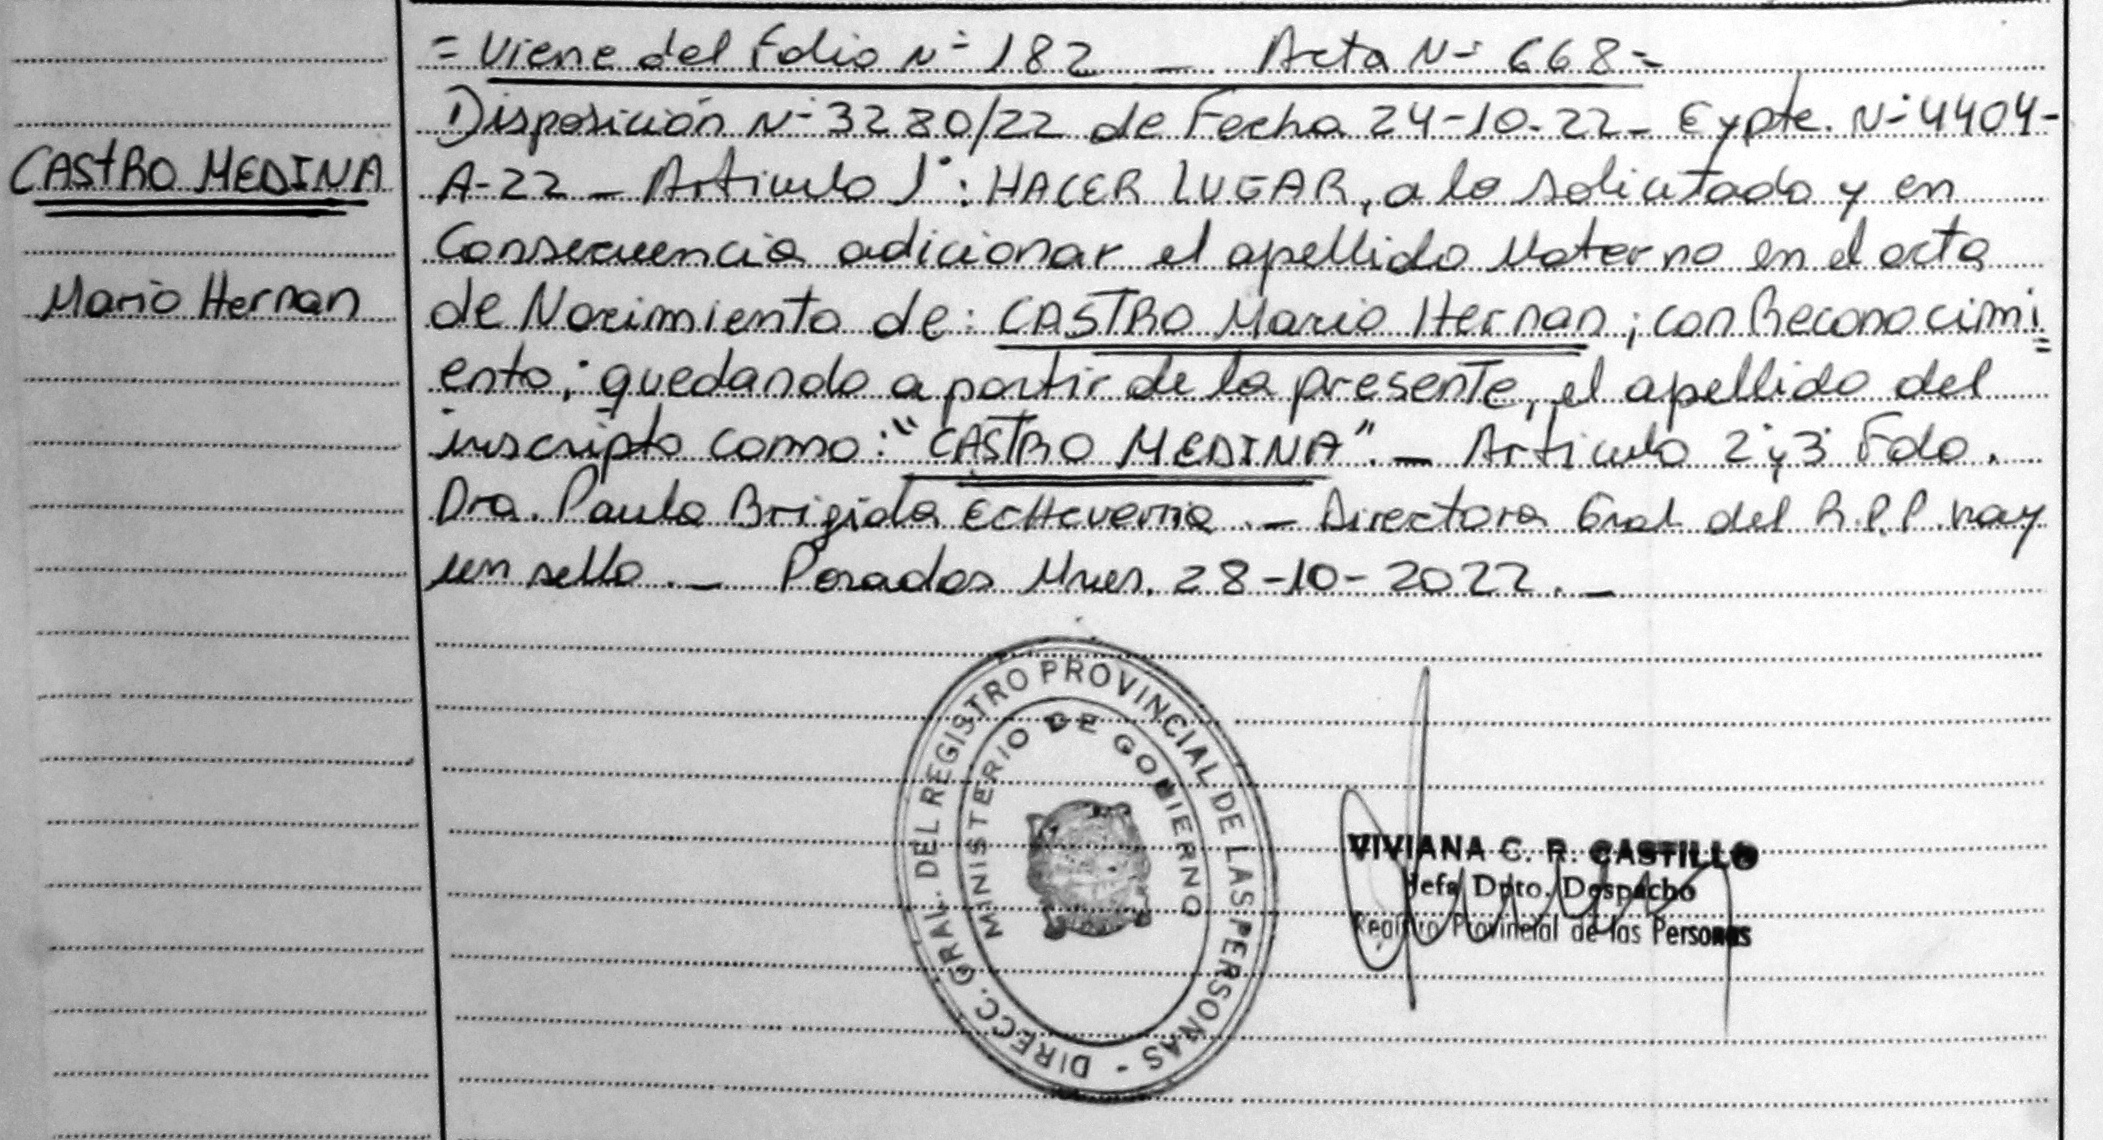 CASTRO MEDINA
Mario Hernan
= Viene del Folio N° 182 _ Acta N° 668=
Disposición N° 3280/22 de Fecha 24-10-22_ Expte. N° 4404-
A-22 _ Articulo 1°: HACER LUGAR, a lo solicitado y en
Consecuencia adicionar el apellido Materno en el acta
de Nacimiento de: CASTRO Mario Hernan; con Reconocimi
ento; quedando a partir de la presente, el apellido del
inscripto como: "CASTRO MEDINA". _ Articulo 2° y 3° Fdo.
Dra. Paula Brigida Echeverria. _ Directora Gral del R.P.P. hay
un sello. _ Posadas Mnes. 28-10-2022. _
DIRECC. GRAL. DEL REGISTRO PROVINCIAL DE LAS PERSONAS -
MINISTERIO DE GOBIERNO
VIVIANA C. R. CASTILLO
Jefa Dpto. Despacho
Registro Provincial de las Personas